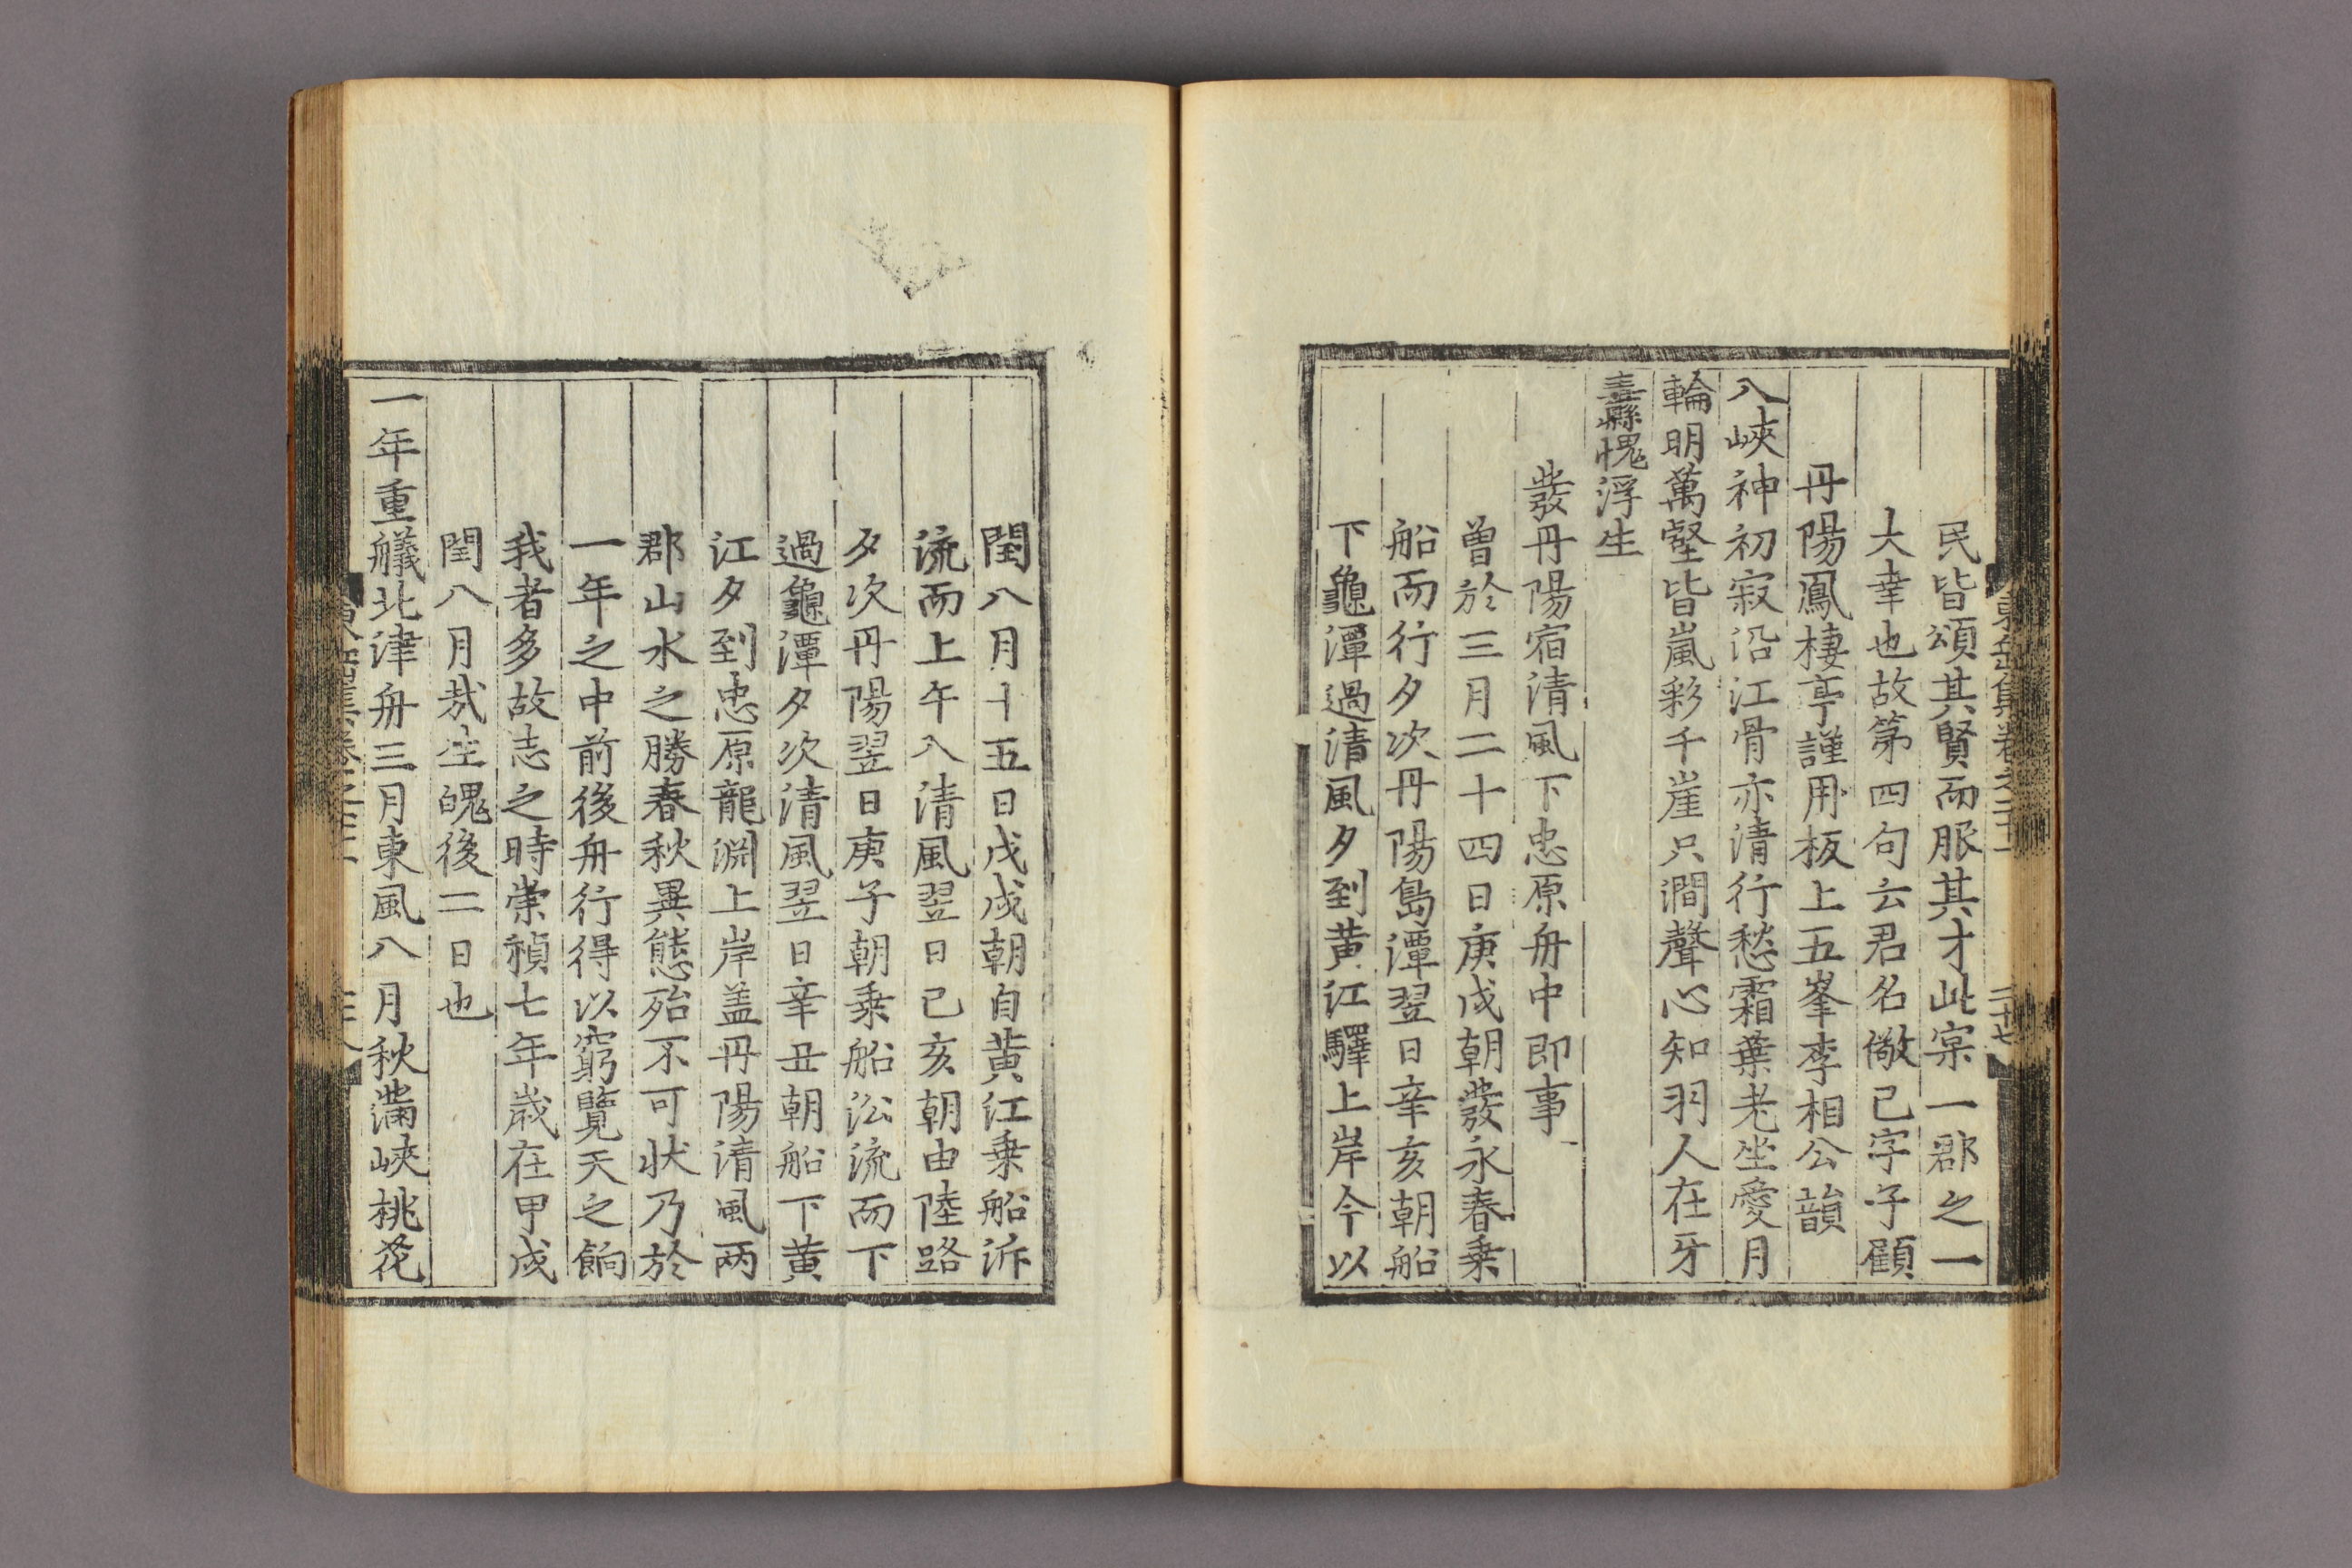 民皆頌其賢而服其才此寀一郡之一
大幸也故第四句云君名儆己字子顧
丹陽鳳棲亭謹用板上五峯李相公韻
入峽神初寂沿江骨亦清行愁霜葉老坐愛月
輪明萬壑皆嵐彩千崖只澗聲心知羽人在牙
纛縣愧浮生
發丹陽宿清風下忠原舟中即事
曾於三月二十四日庚戌朝發永春乗
船而行夕次丹陽島潭翌日辛亥朝船
下龜潭過清風夕到黄江驛上岸今以
閏八月十五日戊戌朝自黄江乗船泝
流而上午入清風翌日己亥朝由陸路
夕次丹陽翌日庚子朝乗船㳂流而下
過龜潭夕次清風翌日辛丑朝船下黄
江夕到忠原龍淵上岸盖丹陽清風两
郡山水之勝春秋異態殆不可状乃於
一年之中前後舟行得以窮覽天之餉
我者多故志之時崇禎七年歳在甲戌
閏八月哉生魄後二日也
一年重艤北津舟三月東風八月秋滿峽桃花